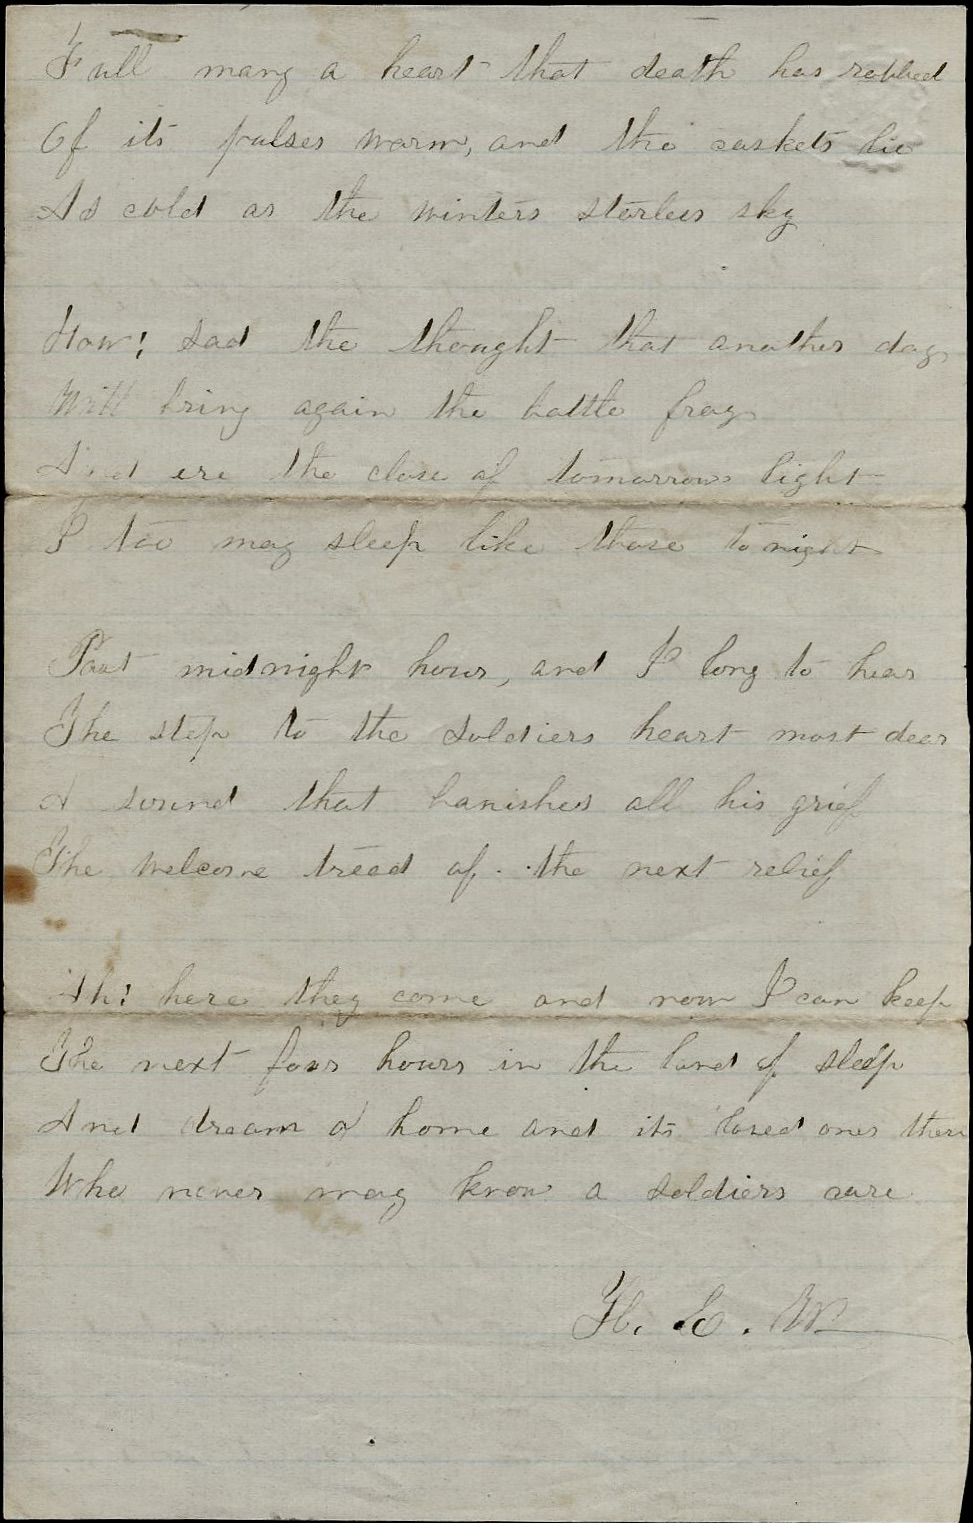 Full many a heart that death has robbed
Of its pulses warm, and the caskets lie
As cold as the winters starless sky
How! sad the thought that another day
Will bring again the battle fray
And ere the close of tomorrows light
I too may sleep like those to night
Past midnight hour, and I long to hear
The step to the soldiers heart most dear
A sound that banishes all his grief
The welcome tread of the next relief
Ah! here they come and now I can keep
The next four hours in the land of sleep
And dream of home and its loved ones there
Who never may know a soldiers care
H. E. W